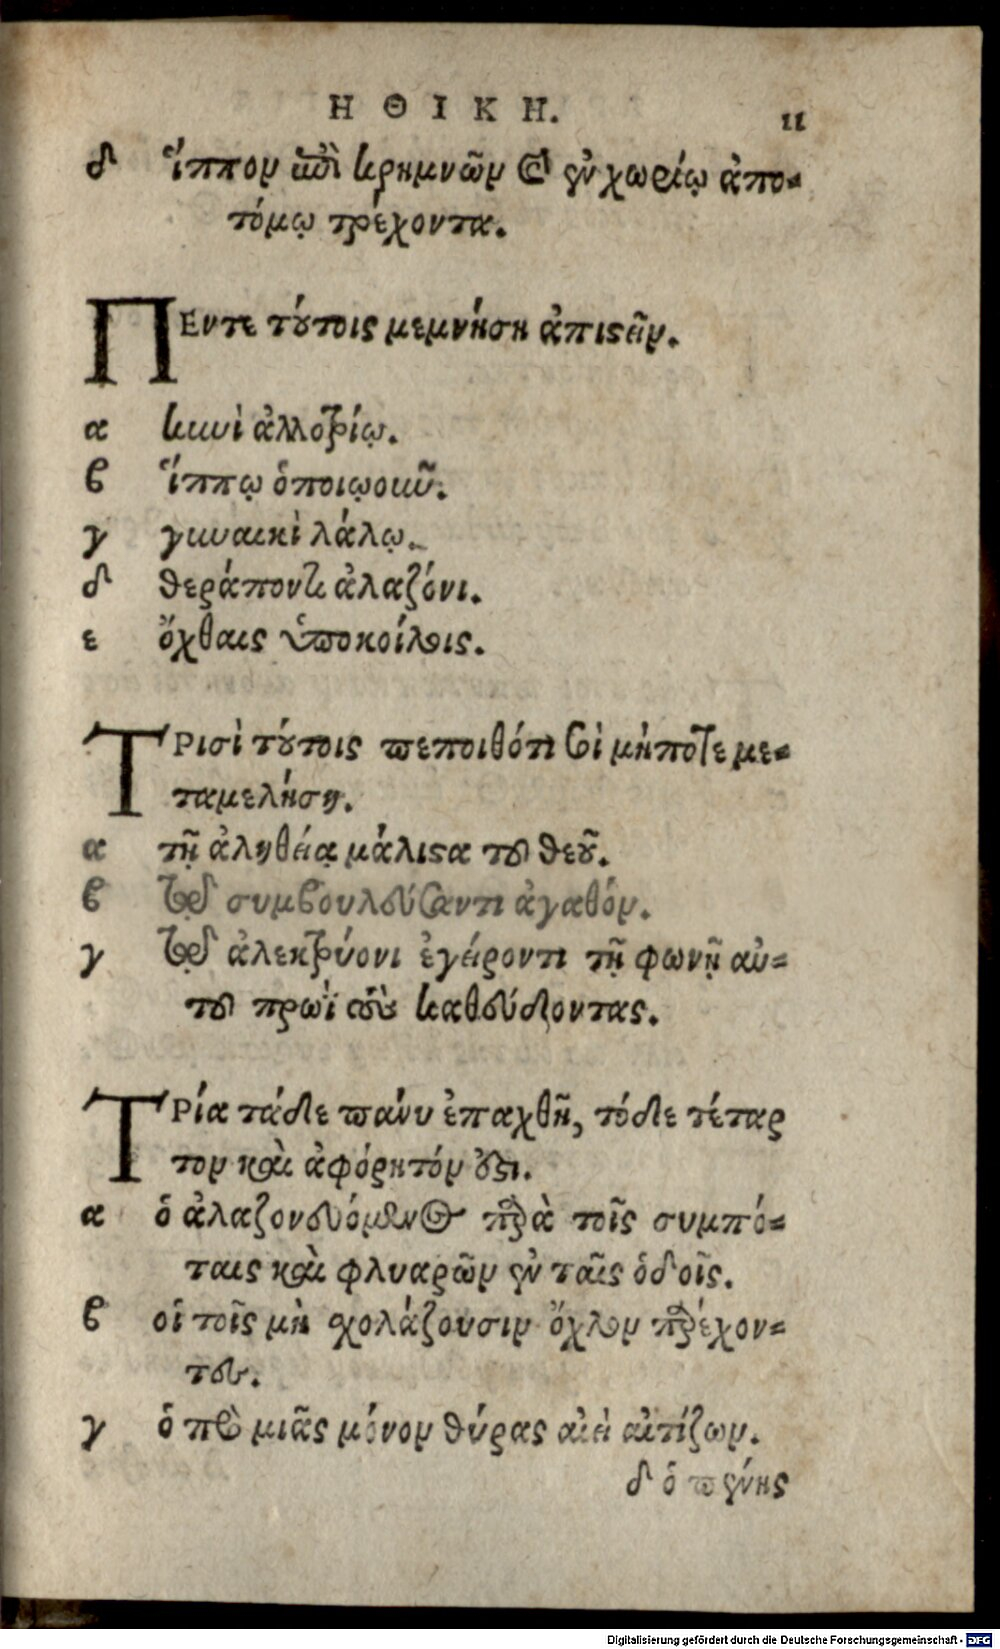 ΗΘΙΚΗ. 11
δ ἵππον ἐπὶ κρημνῶν καὶ ἐν χωρίῳ ἀπο-
τόμῳ τρέχοντα.
ΠΕντε τούτοις μεμνήσῃ ἀπιστεῖν.
α κυνὶ ἀλλοτρίῳ.
β ἵππῳ ὁποιῳοῦν.
γ γυναικὶ λάλῳ.
δ θεράποντι ἀλαζόνι.
ε ὄχθαις ὑποκοίλοις.
ΤΡισὶ τούτοις πεποιθότι σοὶ μήποτε με-
ταμελήσῃ.
α τῇ ἀληθείᾳ μάλιστα τοῦ θεοῦ.
β τῷ συμβουλεύσαντι ἀγαθόν.
γ τῷ ἀλεκτρύονι ἐγείροντι τῇ φωνῇ αὐ-
τοῦ πρωῒ τοὺς καθεύδοντας.
ΤΡία τάδε πάνυ ἐπαχθῆ, τόδε τέταρ
τον καὶ ἀφόρητόν ἐστι.
α ὁ ἀλαζονευόμενος παρὰ τοῖς συμπό-
ταις καὶ φλυαρῶν ἐν ταῖς ὁδοῖς.
β οἱ τοῖς μὴ σχολάζουσιν ὄχλον παρέχον-
τες.
γ ὁ πρὸ μιᾶς μόνον θύρας αἰεὶ αἰτίζων.
δ ὁ πένης
Digitalisierung gefördert durch die Deutsche Forschungsgemeinschaft - DFG